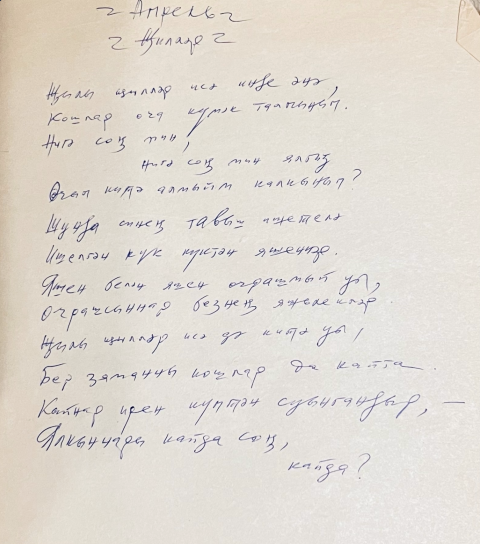 Апрель
Җилләре
Җылы җилләр исә инде әнә,
Кошлар оча күмәк талпынып.
Нигә соң мин,
нигә соң мин ялгыз
Очып китә алмыйм калкынып?
Шунда синең тавыш ишетелә
Ишелгән күк күктән яшенгә.
Яшен белән яшен очрашмый ул,
Очрашсыннар безнең яшьлекләр.
Җылы җилләр исә дә китә ул,
Бер заманны кошлар да кайта.
Каннар ирен күптән суынгандыр, —
Ялкыннары кайда соң,
кайда?